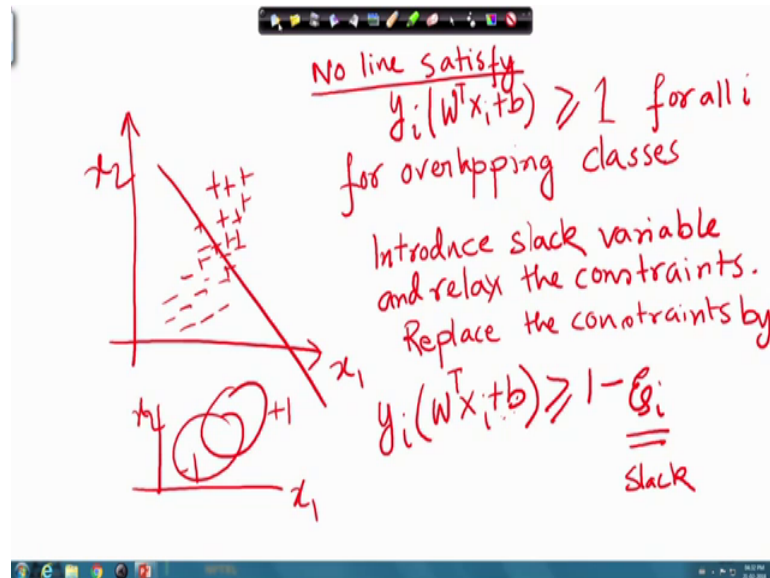 No line satisfy
yᵢ(Wᵀxᵢ+b) ⩾ 1 for all i
for overlapping classes
Introduce slack variable
and relax the constraints.
Replace the constraints by
yᵢ(Wᵀxᵢ+b) ⩾ 1 - ξᵢ
slack
x₂
x₁
x₂
+1
-1
x₁
NPTEL